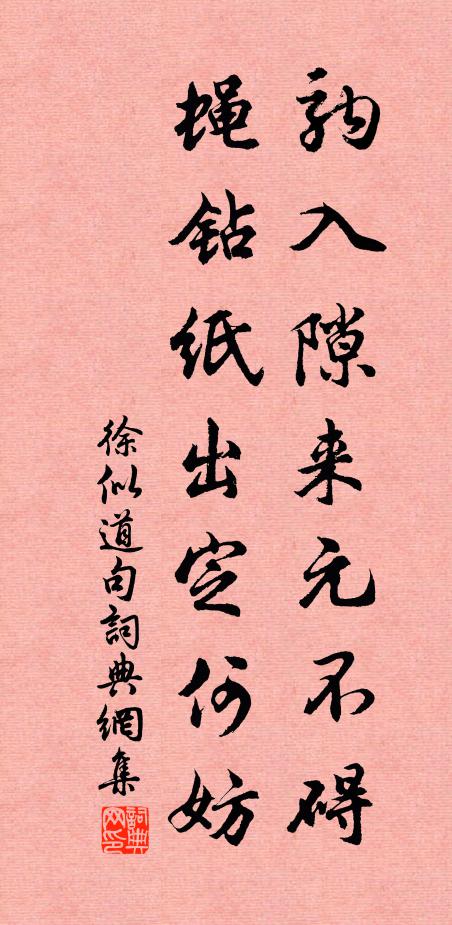 驹入隙来元不碍
蝇钻纸出定何妨
徐似道句詞典網集
詞典
网印